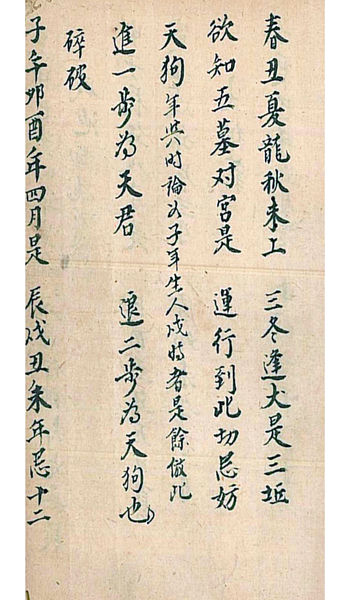 春丑夏龍秋未工 三冬逢犬是三坵
欲知五墓对宮是 運行到此切忌妨
天狗年与时論如子年生人戌時者是餘倣此
進一步為天君 退二步為天狗也
碎破
子午卯酉年四月是 辰戌丑未年忌十二